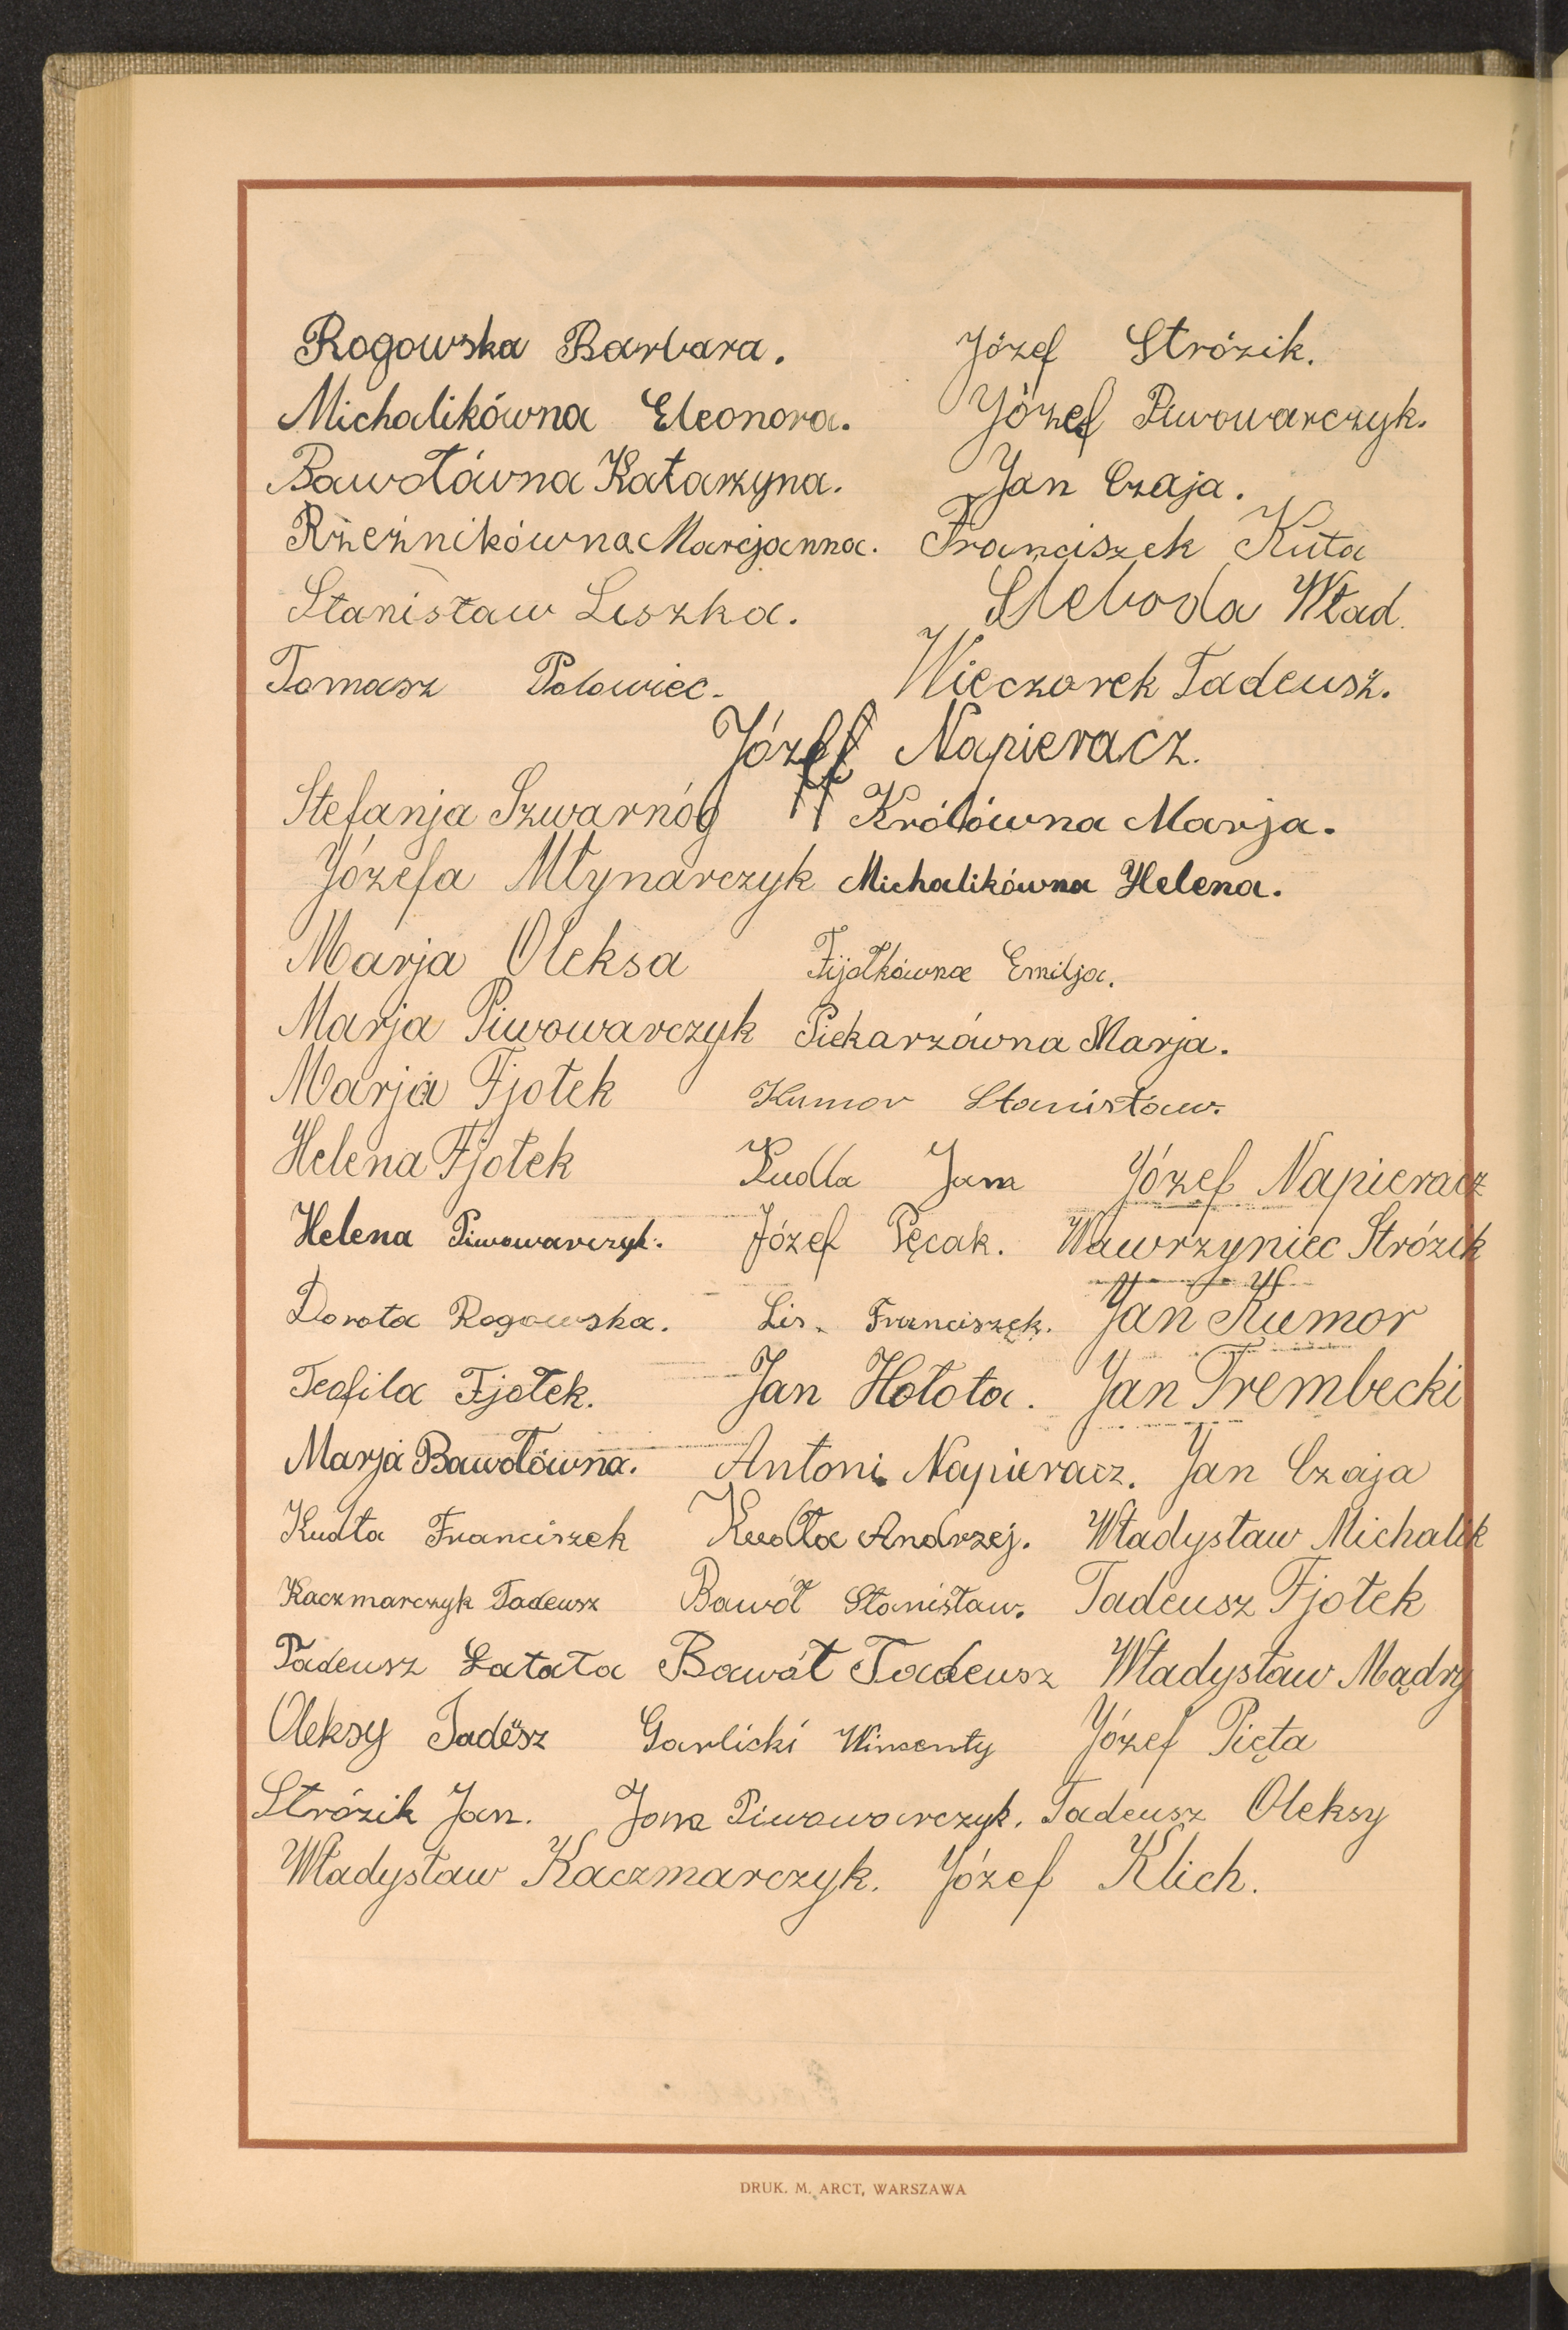 Rogowska Barbara. Józef Strózik.
Michalikówna Eleonora. Józef Piwowarczyk.
Bawołówna Katarzyna. Jan Czaja.
Rzeźnikówna Marcjanna. Franciszek Kuta
Stanisław Liszka. Słeboda Wład.
Tomasz Połowiec. Wieczorek Tadeusz.
Józef Napieracz.
Stefanja Szwarnóg Królówna Marja.
Józefa Młynarczyk Michalikówna Helena.
Marja Oleksa Fijołkówna Emilja.
Marja Piwowarczyk Piekarzówna Marja.
Marja Fjołek Kumor Stanisław.
Helena Fjołek Kudła Jan Józef Napieracz
Helena Piwowarczyk. Józef Pęcak. Wawrzyniec Strózik
Dorota Rogowska. Lis Franciszek. Jan Kumor
Teofila Fjołek. Jan Hołota. Jan Trembecki
Marja Bawołówna. Antoni Napieracz. Jan Czaja
Kudła Franciszek Kudła Andrzej. Władysław Michalik
Kaczmarczyk Tadeusz Bawół Stanisław. Tadeusz Fjołek
Tadeusz Łatata Bawół Tadeusz Władysław Mądry
Oleksy Tadeusz Garlicki Wincenty Józef Pięta
Strózik Jan. Jan Piwowarczyk. Tadeusz Oleksy
Władysław Kaczmarczyk. Józef Klich.
DRUK. M. ARCT, WARSZAWA